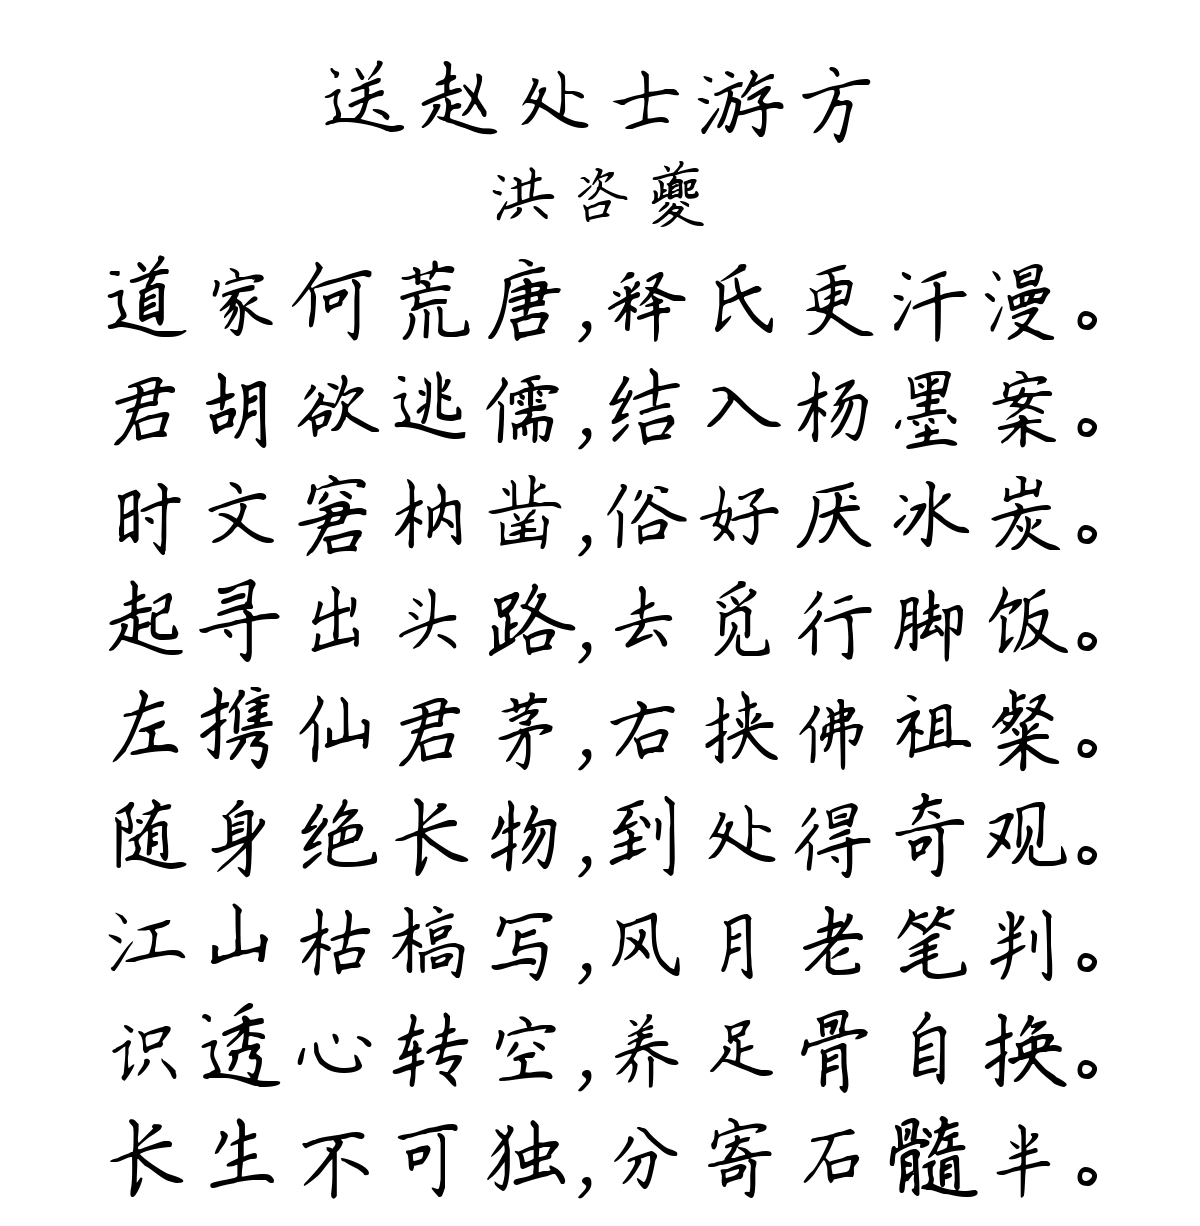 送赵处士游方
洪咨夔
道家何荒唐,释氏更汗漫。
君胡欲逃儒,结入杨墨案。
时文窘枘凿,俗好厌冰炭。
起寻出头路,去觅行脚饭。
左携仙君茅,右挟佛祖粲。
随身绝长物,到处得奇观。
江山枯槁写,风月老笔判。
识透心转空,养足骨自换。
长生不可独,分寄石髓半。